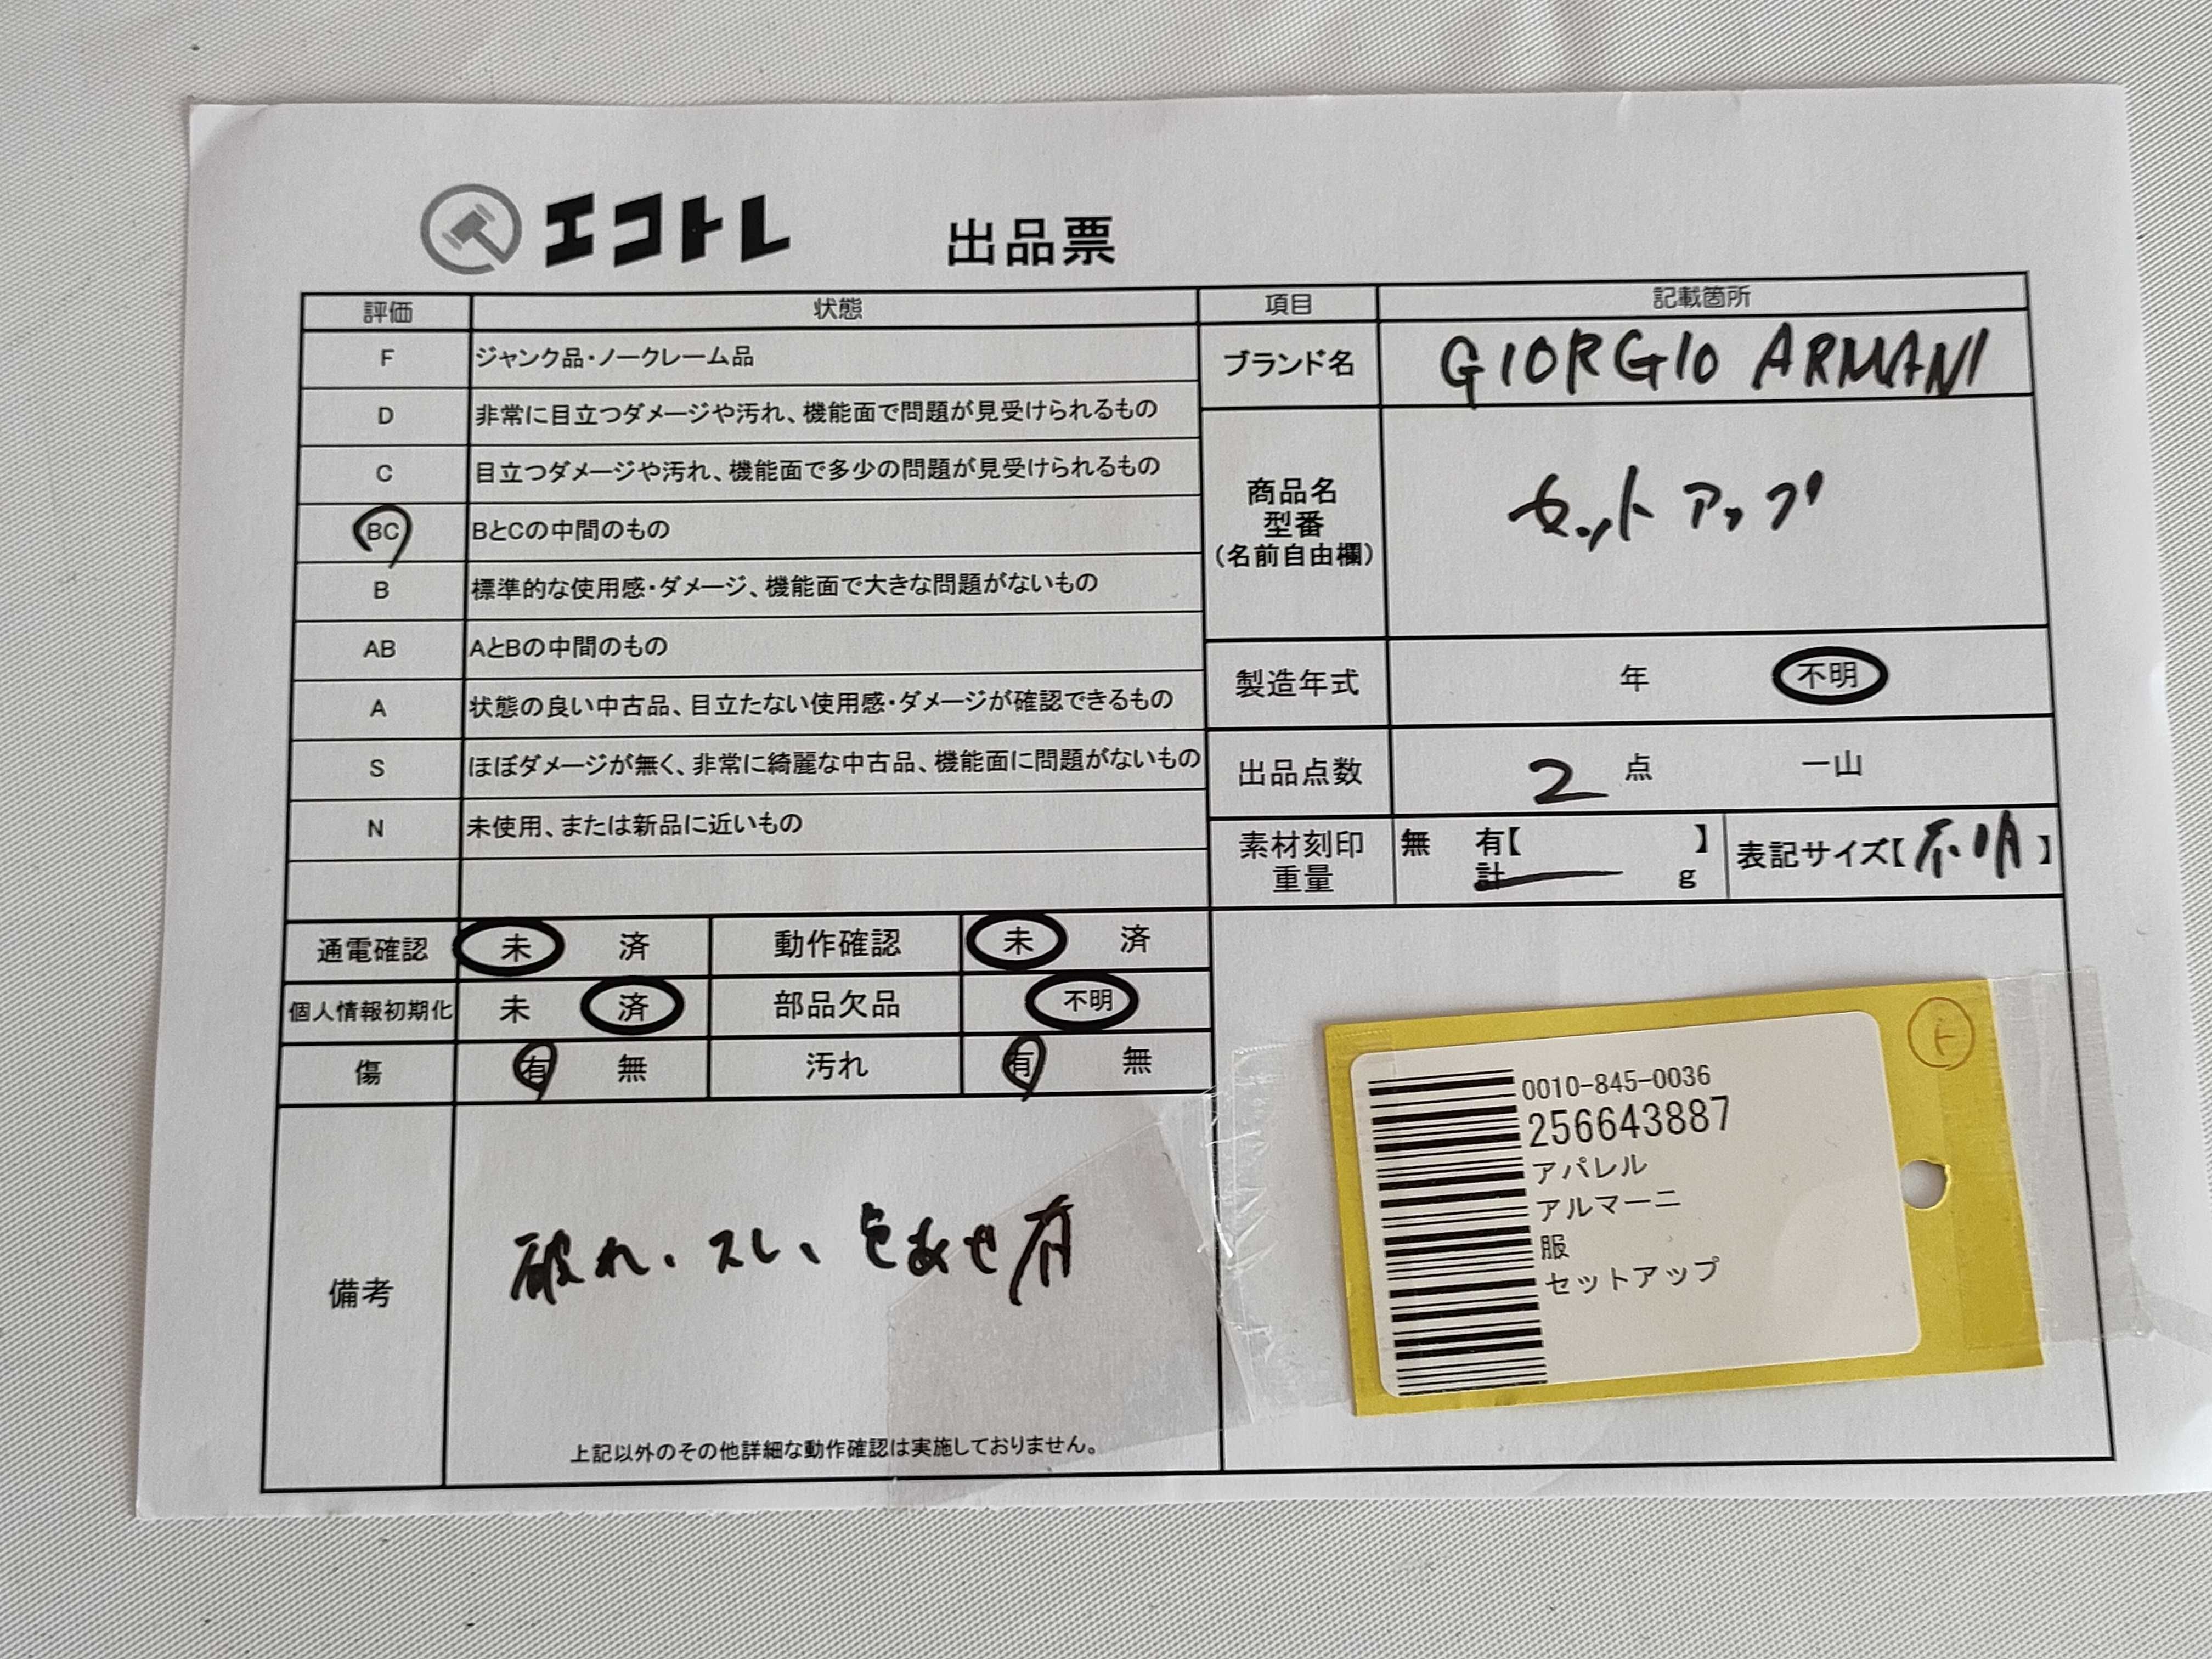 エコトレ 出品票
評価 状態
F ジャンク品・ノークレーム品
D 非常に目立つダメージや汚れ、機能面で問題が見受けられるもの
C 目立つダメージや汚れ、機能面で多少の問題が見受けられるもの
BC BとCの中間のもの
B 標準的な使用感・ダメージ、機能面で大きな問題がないもの
AB AとBの中間のもの
A 状態の良い中古品、目立たない使用感・ダメージが確認できるもの
S ほぼダメージが無く、非常に綺麗な中古品、機能面に問題がないもの
N 未使用、または新品に近いもの
項目 記載箇所
ブランド名 GIORGIO ARMANI
商品名
型番
(名前自由欄)
セットアップ
製造年式 年 不明
出品点数 2 点 一山
素材刻印 無 有【 】
重量 計 g
表記サイズ【不明】
通電確認 未 済 動作確認 未 済
個人情報初期化 未 済 部品欠品 不明
傷 有 無 汚れ 有 無
備考
破れ、スレ、色あせ有
上記以外のその他詳細な動作確認は実施しておりません。
ト
0010-845-0036
256643887
アパレル
アルマーニ
服
セットアップ